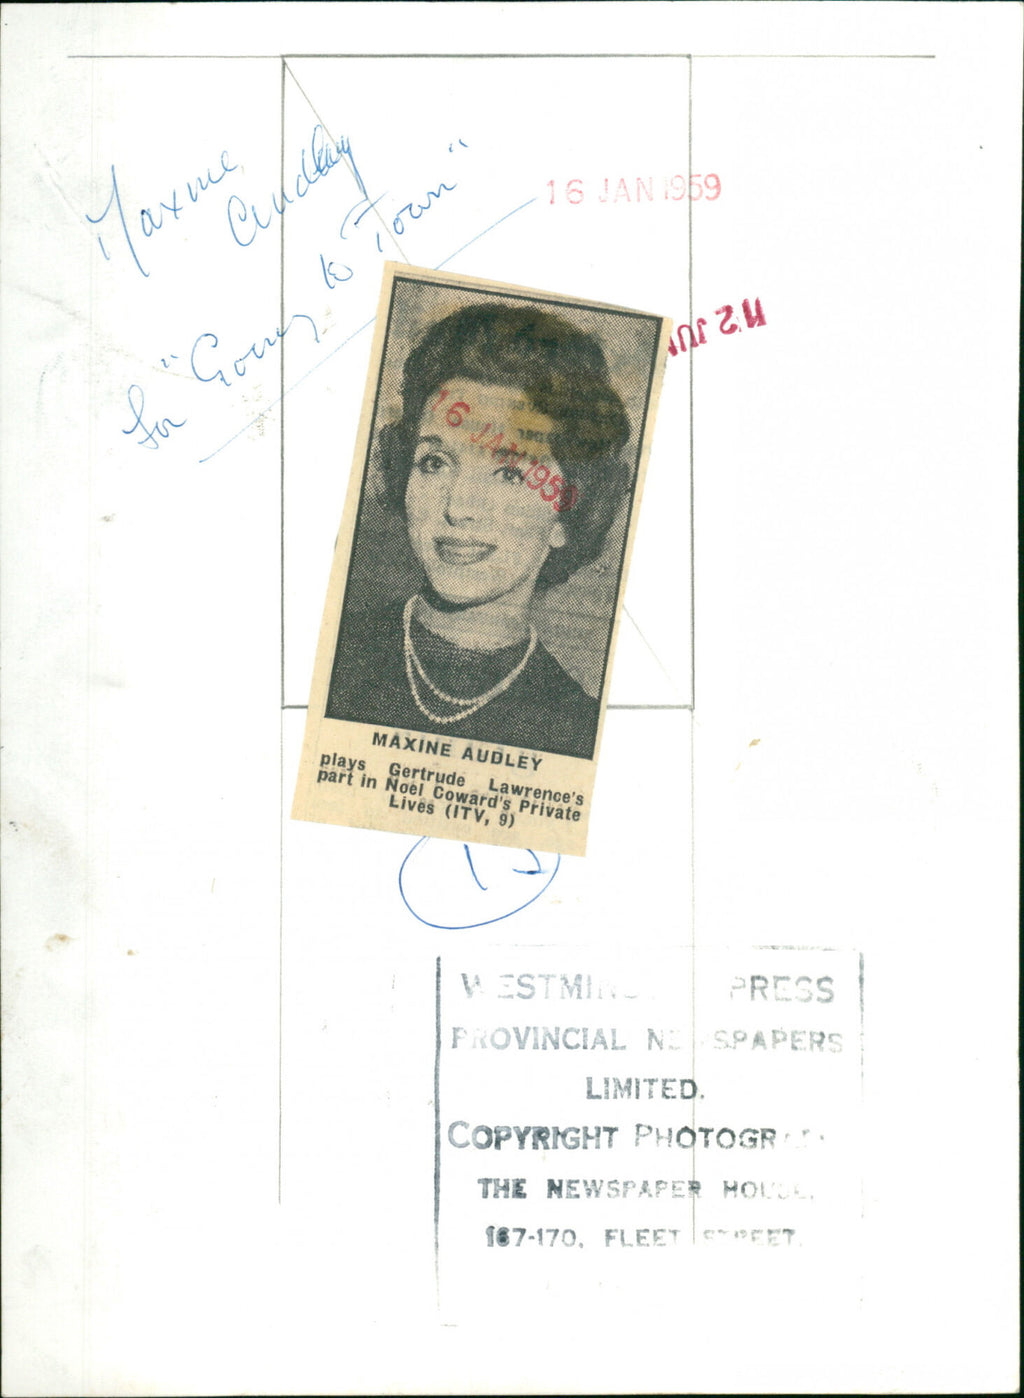 Maxine
Audley
for "Going to Town"
16 JAN 1959
12 JUN
16 JAN 1959
MAXINE AUDLEY
plays Gertrude Lawrence's
part in Noel Coward's Private
Lives (ITV, 9)
WESTMINSTER PRESS
PROVINCIAL NEWSPAPERS
LIMITED.
COPYRIGHT PHOTOGRAPH
THE NEWSPAPER HOUSE,
167-170, FLEET STREET,